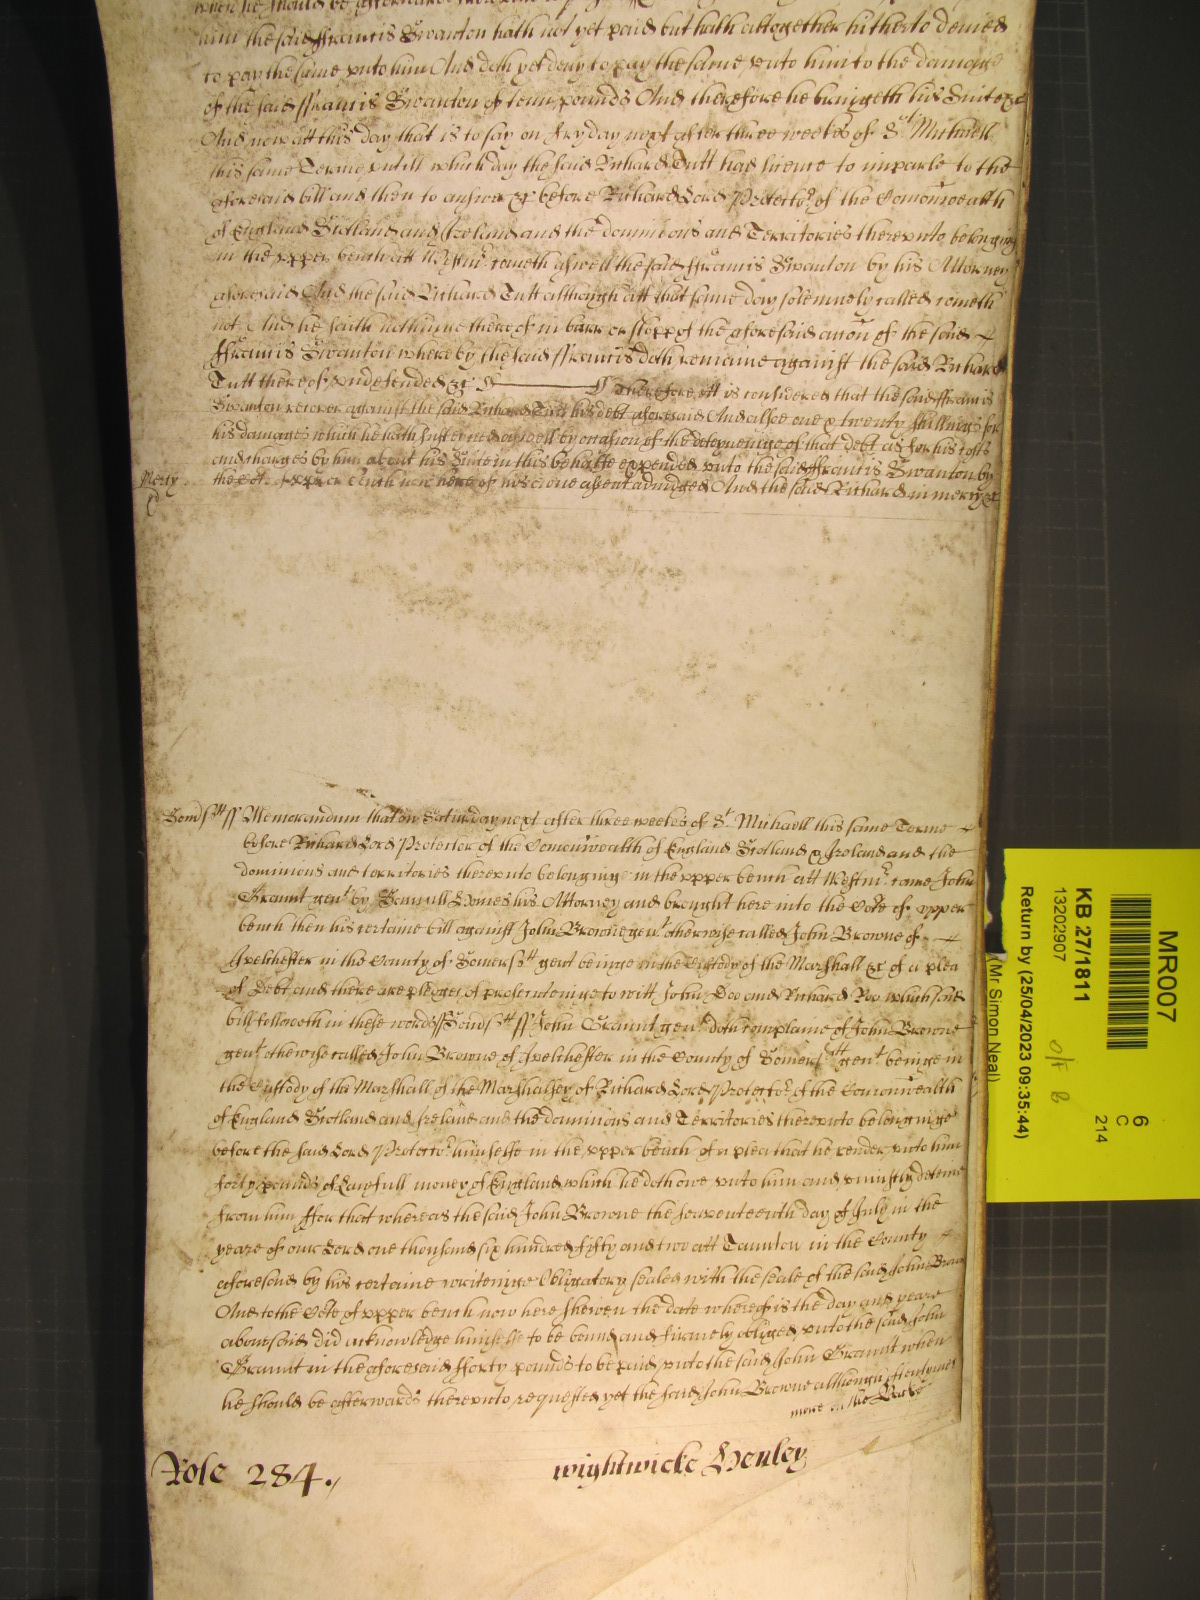 when he should be afterwards thereunto
him the said ffrancis Swanton hath not yet paid but hath altogether hitherto denied
to pay the same unto him And doth yet deny to pay the same unto him to the damage
of the said ffrancis Swanton of tenn pounds And therefore he bringeth his Suite &c
And now att this day that is to say on fryday next after three weekes of St Michaell
this same Terme untill which day the said Richard Tutt had licence to imparle to the
aforesaid bill and then to answer &c before Richard Lord Protector of the Comonwealth
of England Scotland and Ireland and the dominions and Territories thereunto belonging
in the upper bench att Westmr cometh aswell the said ffrancis Swanton by his Attorney
aforesaid And the said Richard Tutt although att that same day solemnely called cometh
not And he saith nothinge thereof in barr or stopp of the aforesaid accon of the said
ffrancis Swanton whereby the said ffrancis doth remaine against the said Richard
Tutt thereof undefended &c Therefore itt is considered that the said ffrancis
Swanton recover against the said Richard Tutt his debt aforesaid And alsoe one & twenty shillings for
his damages which he hath susteyned aswell by occasion of the deteyneinge of that debt as for his costs
and charges by him about his Suite in this behalfe expended unto the said ffrancis Swanton by
the Cort of upper bench now here of his owne assent adiudged And the said Richard in mercy &c
Mercy
Somstt ss Memorandum that on Saturday next after three weekes of St Michaell this same Terme
before Richard Lord Protector of the Comonwealth of England Scotland & Ireland and the
dominions and territories thereunto belonginge in the upper bench att Westmr came John
Graunt gent by his Attorney and brought here into the Cort of upper
bench then his certaine bill against John Browne gent otherwise called John Browne of
Ivelchester in the County of Somersett gent beinge in the Custody of the Marshall &c of a plea
of Debt and there are pledges of prosecuteinge to witt John Doo and Richard Roo which said
bill followeth in these words ss Somsett ss John Graunt gent doth complaine of John Browne
gent otherwise called John Browne of Ivelchester in the County of Somersett gent beinge in
the Custody of the Marshall of the Marshalsey of Richard Lord Protector of the Comonwealth
of England Scotland and Ireland and the dominions and Territories thereunto belonginge
before the said Lord Protector himselfe in the upper bench of a plea that he render unto him
forty pounds of Lawfull money of England which he doth owe unto him and uniustly deteine
from him ffor that whereas the said John Browne the seaventeenth day of July in the
yeare of our Lord one thousand six hundred fifty and two att Taunton in the County
aforesaid by his certaine writeinge Obligatory sealed with the seale of the said John Browne
And to the Cort of upper bench now here shewen the date whereof is the day and yeare
abovesaid did acknowledge himselfe to be bound and firmely obliged unto the said John
Graunt in the aforesaid fforty pounds to be paid unto the said John Graunt when
he should be afterwards thereunto requested yet the said John Browne although oftentymes
more on the Backe
Role 284.
wightwicke Henley
MR007
KB 27/1811
13202907
6
C
214
Return by (25/04/2023 09:35:44)
(Mr Simon Neal)